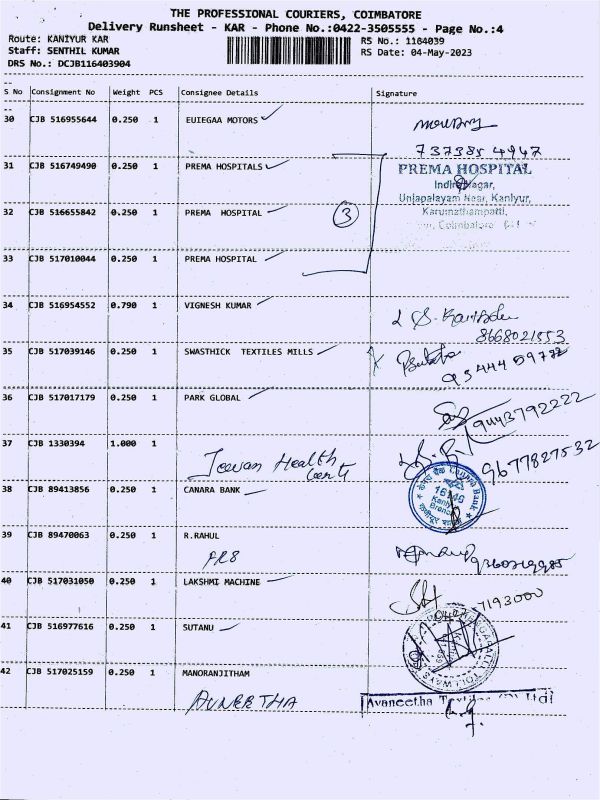 THE PROFESSIONAL COURIERS, COIMBATORE
Delivery Runsheet - KAR - Phone No.:0422-3505555 - Page No.:4
Route: KANIYUR KAR
RS No.: 1164039
Staff: SENTHIL KUMAR
RS Date: 04-May-2023
DRS No.: DCJB116403904
S No Consignment No Weight PCS Consignee Details Signature
30 CJB 516955644 0.250 1 EUIEGAA MOTORS
737385 4947
31 CJB 516749490 0.250 1 PREMA HOSPITALS
PREMA HOSPITAL
Indira Nagar,
Unjapalayam Near, Kaniyur,
Karumathampatti,
Coimbatore
32 CJB 516655842 0.250 1 PREMA HOSPITAL
3
33 CJB 517010044 0.250 1 PREMA HOSPITAL
34 CJB 516954552 0.790 1 VIGNESH KUMAR
8668021553
35 CJB 517039146 0.250 1 SWASTHICK TEXTILES MILLS
36 CJB 517017179 0.250 1 PARK GLOBAL
9443792222
37 CJB 1330394 1.000 1
Jeevan Health
9677827532
38 CJB 89413856 0.250 1 CANARA BANK
Canara Bank
16146
Branch
39 CJB 89470063 0.250 1 R.RAHUL
PR8
9360219985
40 CJB 517031050 0.250 1 LAKSHMI MACHINE
7193000
41 CJB 516977616 0.250 1 SUTANU
42 CJB 517025159 0.250 1 MANORANJITHAM
AVNEETHA
Avaneetha Textiles (P) Ltd